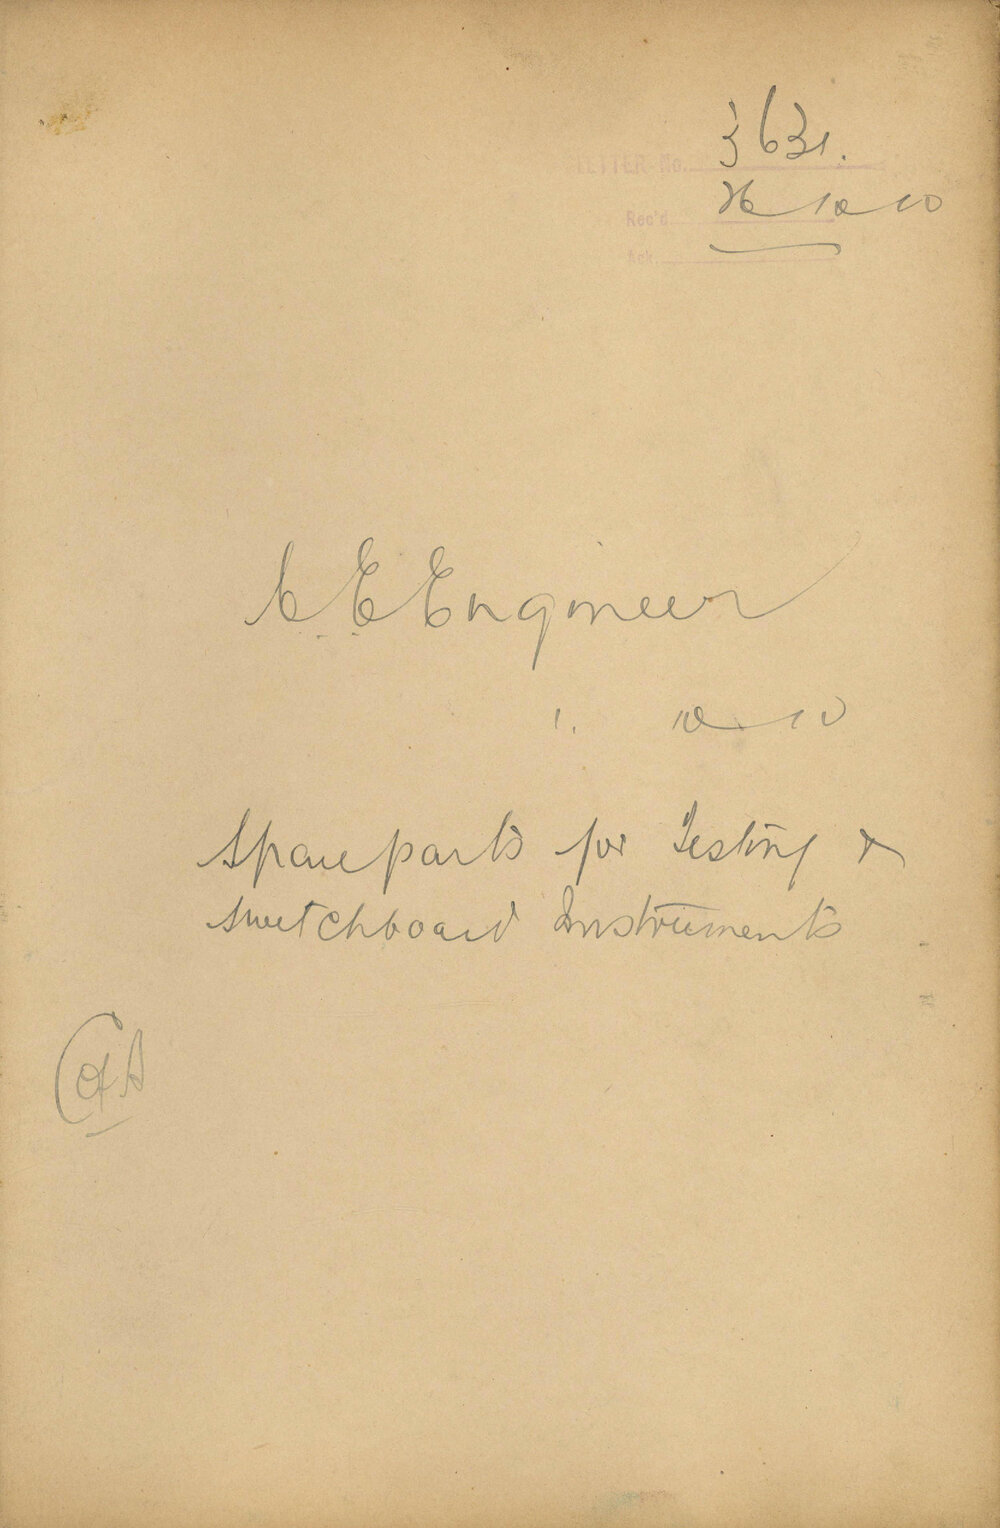 LETTER No. 3631.
Rec'd 26 10 10
Ack.
C E Engineer
1. 10 10
Spare parts for Testing &
switchboard Instruments